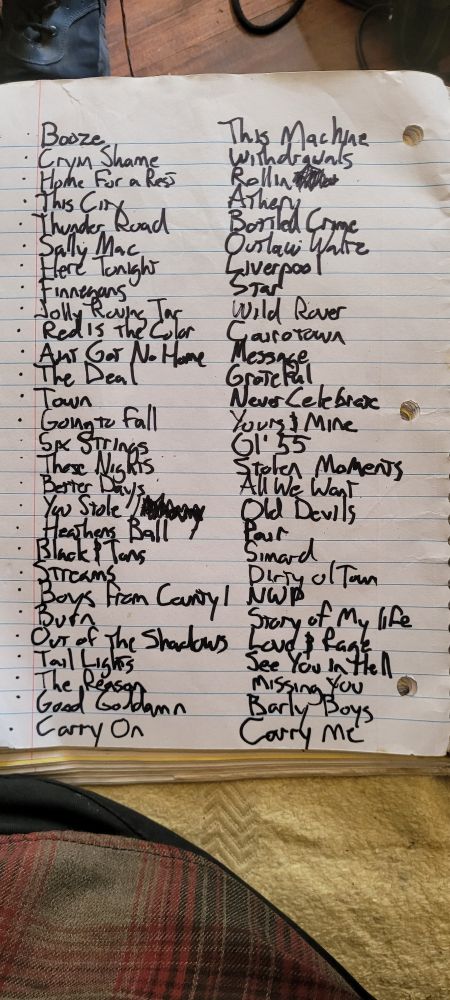 Booze
Crym Shame
Home For a Rest
This City
Thunder Road
Sally Mac
Here Tonight
Finnegans
Jolly Roving Tar
Red Is The Color
Aint Got No Home
The Deal
Town
Going to Fall
Six Strings
These Nights
Better Days
You Stole
Heathens Ball
Black & Tans
Streams
Boys From County
Burn
Out of The Shadows
Tail Lights
The Reason
Good Goddamn
Carry On
This Machine
Withdrawals
Rollin
Athenry
Bottled Crime
Outlaw Waltz
Liverpool
Star
Wild Rover
Message
Grateful
Never Celebrate
Yours & Mine
Ol' 55
Stolen Moments
All We Want
Old Devils
Pour
Simard
Dirty ol Town
NWP
Story of My life
Love & Rage
See You in Hell
Missing You
Barly Boys
Carry Me